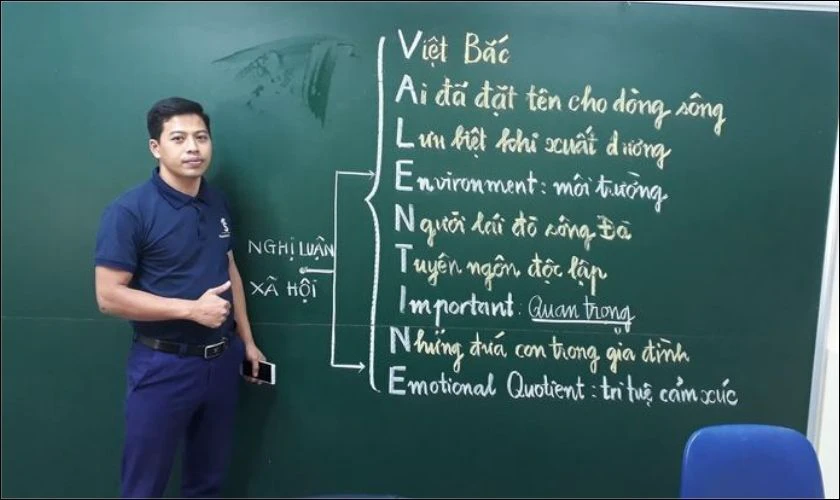 Việt Bắc
Ai đã đặt tên cho dòng sông
Lưu biệt khi xuất dương
Environment: môi trường
NGHỊ LUẬN
XÃ HỘI
Người lái đò sông Đà
Tuyên ngôn độc lập
Important: Quan trọng
Những đứa con trong gia đình
Emotional Quotient: trí tuệ cảm xúc